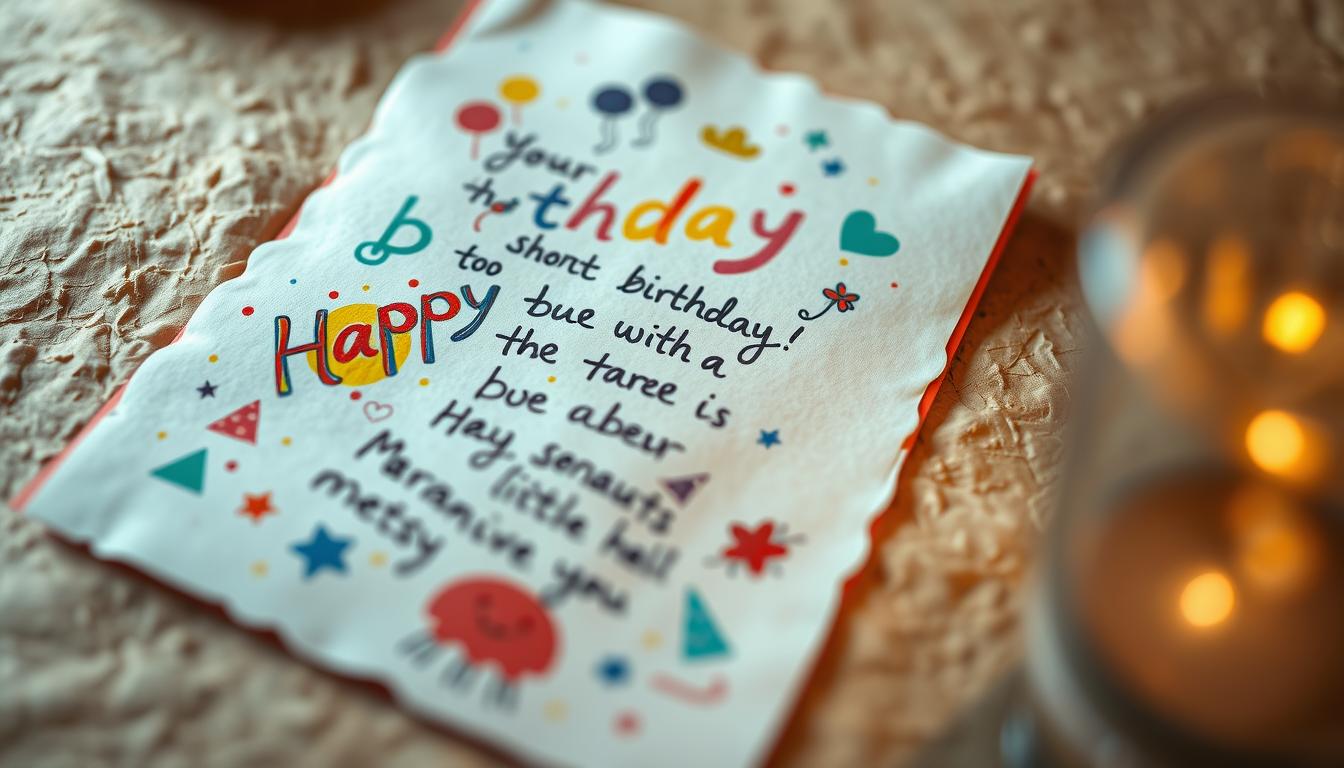 your
the thday
b
short birthday!
too
Happy
bue with a
the taree is
bue abeur
Hay senauts
little hell
Maranive you
metsy